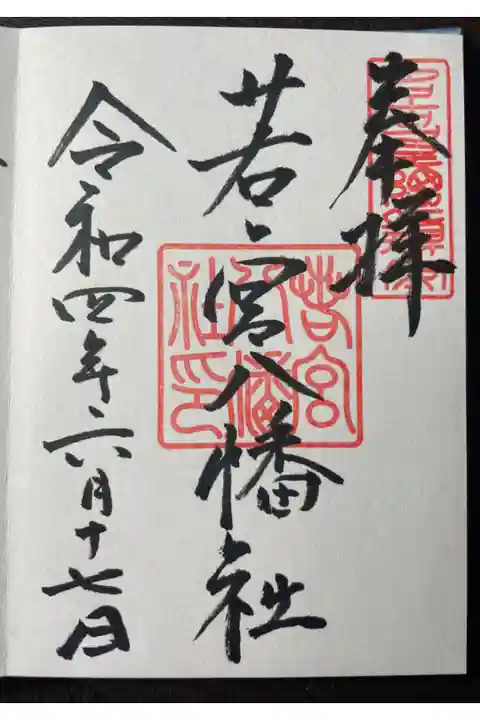 奉拝
若宮八幡社
令和四年六月十七日
若宮
八幡
社印